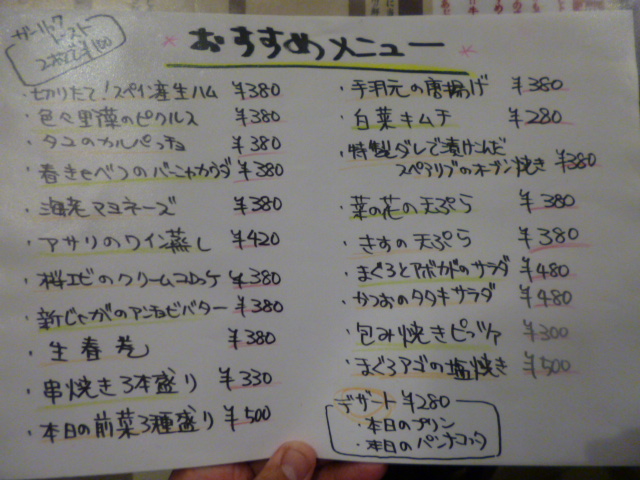 ガーリック
トースト
2枚で¥100
おすすめメニュー
・切りたて!スペイン産生ハム ¥380
・色々野菜のピクルス ¥380
・タコのカルパッチョ ¥380
・春きゃべつのバーニャカウダ ¥380
・海老マヨネーズ ¥380
・アサリのワイン蒸し ¥420
・桜エビのクリームコロッケ ¥380
・新じゃがのアンチョビバター ¥380
・生春巻 ¥380
・串焼き3本盛り ¥330
・本日の前菜3種盛り ¥500
・手羽元の唐揚げ ¥380
・白菜キムチ ¥280
・特製ダレで漬けこんだ
スペアリブのオーブン焼き ¥380
・菜の花の天ぷら ¥380
・きすの天ぷら ¥380
・まぐろとアボカドのサラダ ¥480
・かつおのタタキサラダ ¥480
・包み焼きピッツァ ¥300
・まぐろアゴの塩焼き ¥500
デザート ¥280
・本日のプリン
・本日のパンナコッタ